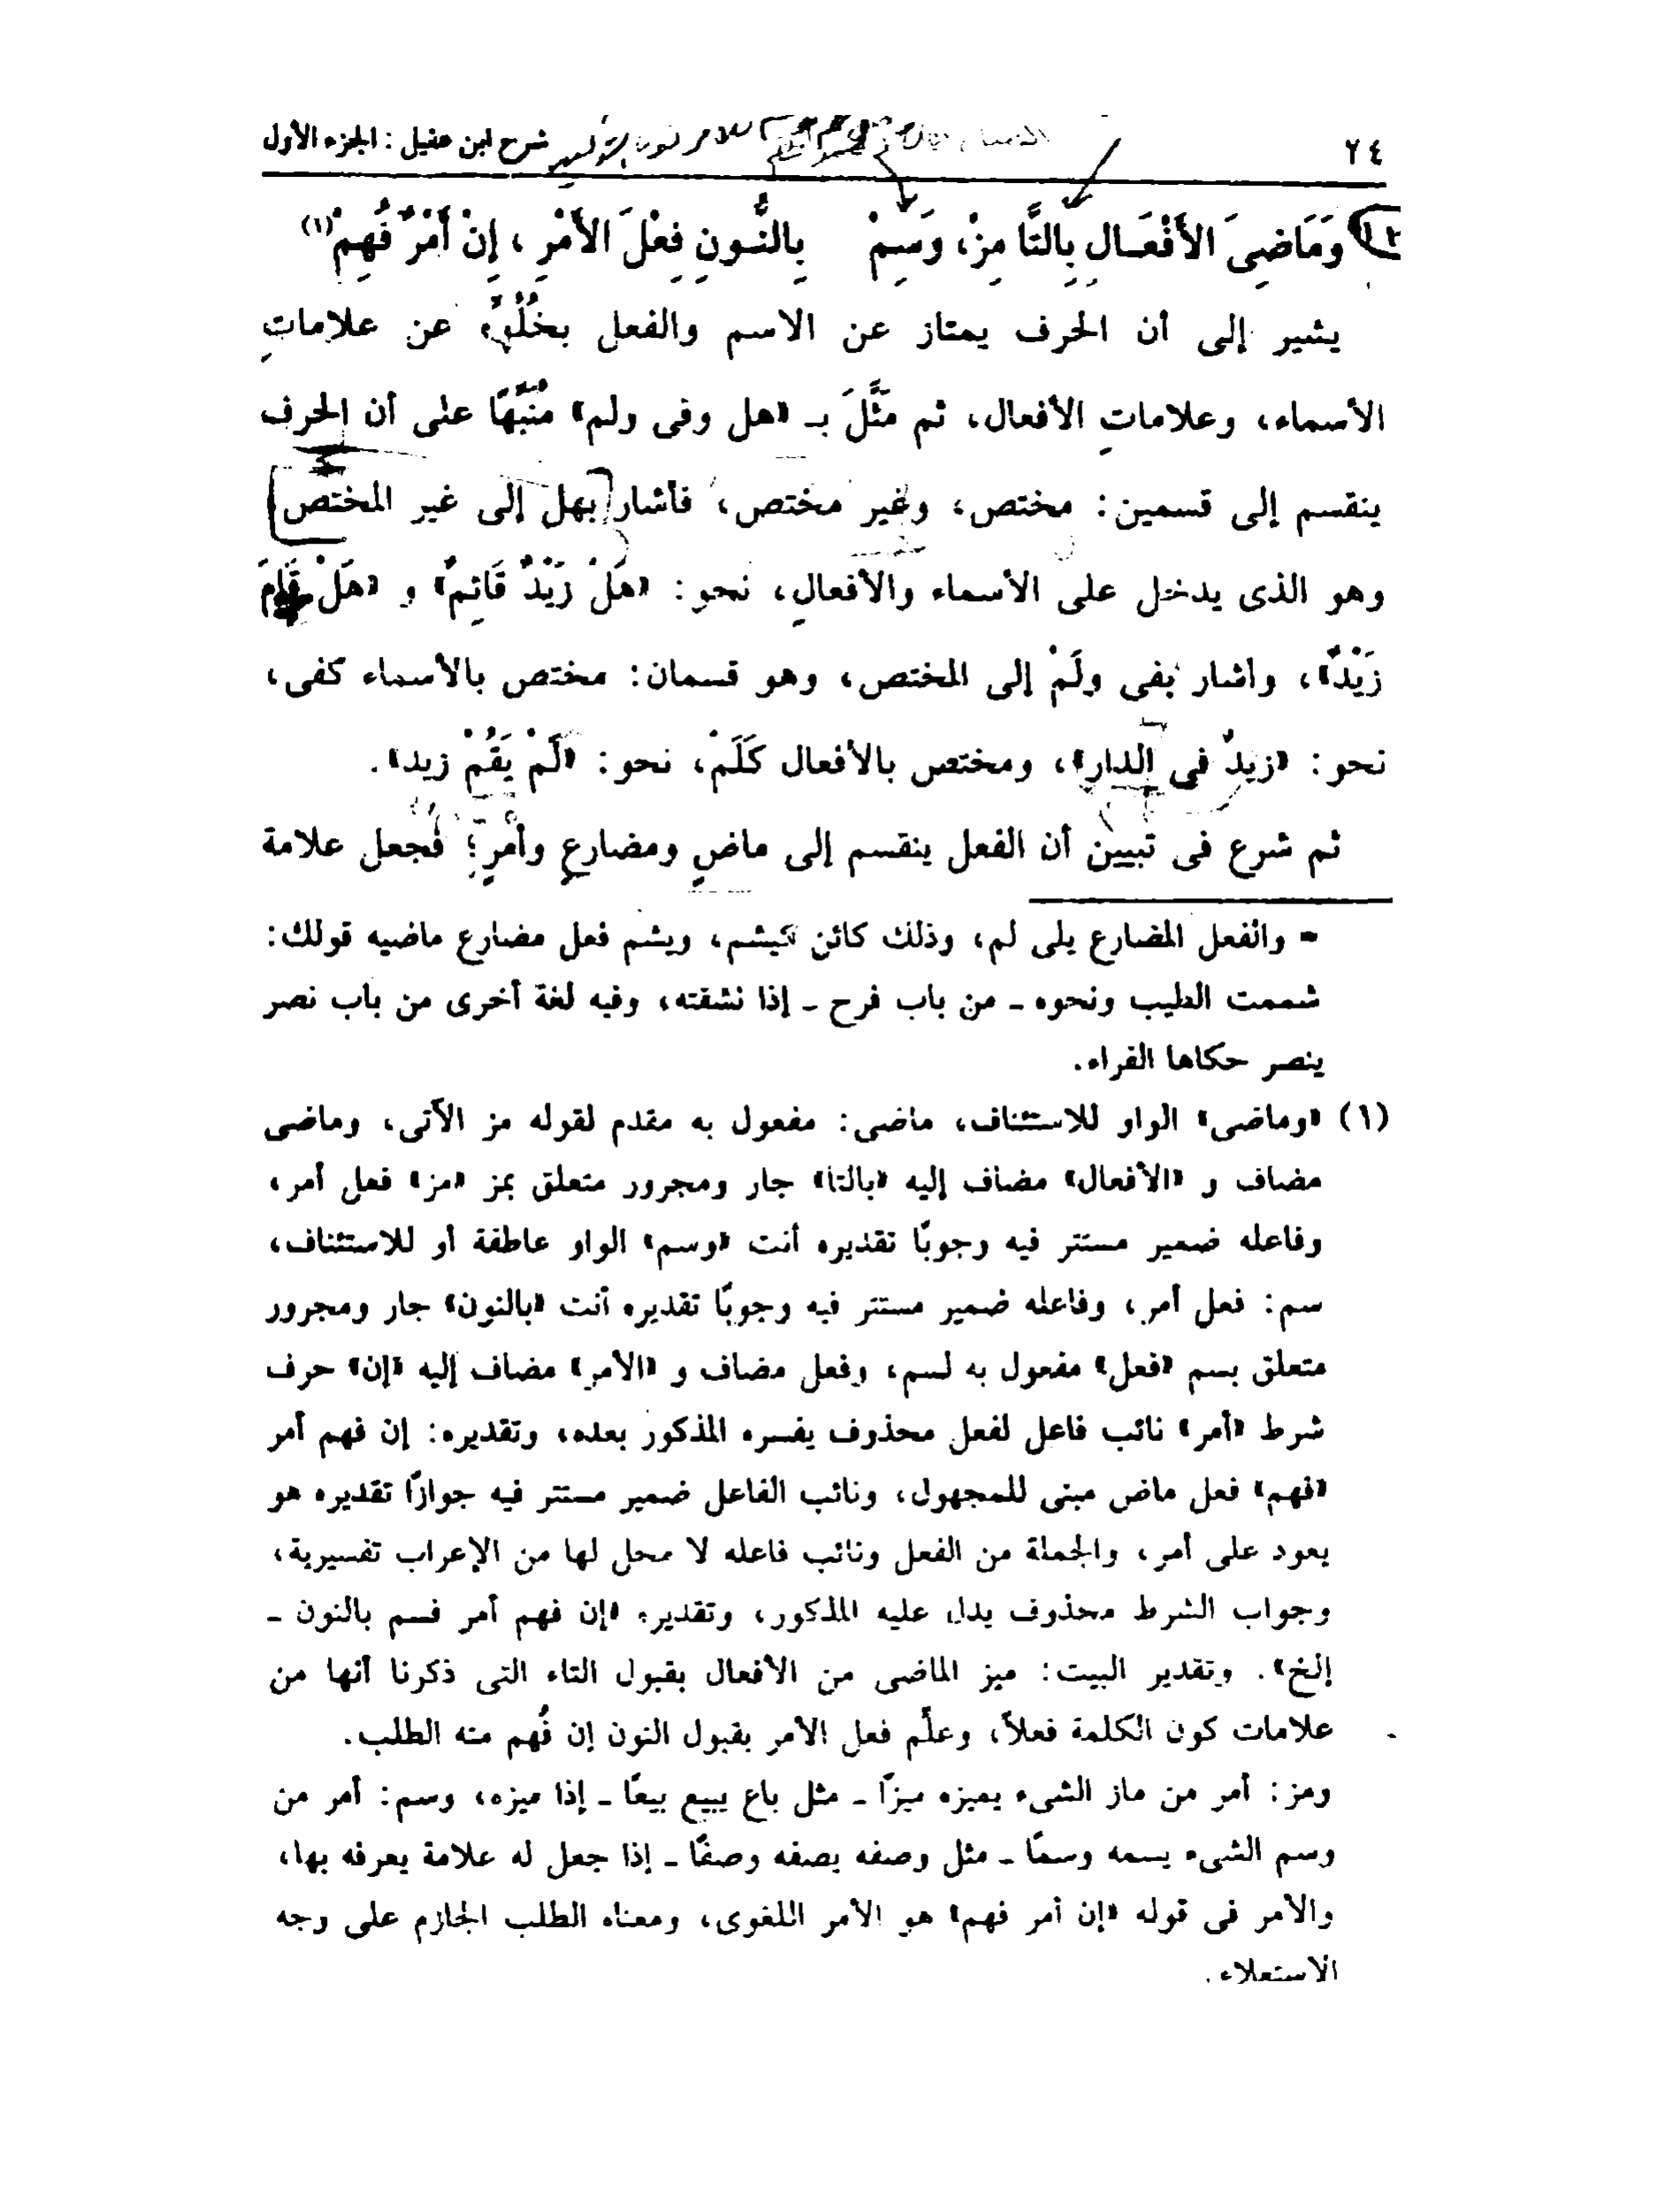 ٢٤
شرح ابن عقيل : الجزء الأول
وَمَاضِىَ الأَفْعَـالِ بِالتَّا مِزْ، وَسِمْ بِالنُّـونِ فِعْلَ الأَمْرِ ، إِنْ أَمْرٌ فُهِمْ(١)
يشير إلى أن الحرف يمتاز عن الاسم والفعل بخُلُوِّه عن علاماتِ
الأسماء، وعلاماتِ الأفعال، ثم مَثَّلَ بـ «هل وفى ولم» مُنَبِّهًا على أن الحرف
ينقسم إلى قسمين: مختص، وغير مختص، فأشار بهل إلى غير المختص
وهو الذى يدخل على الأسماء والأفعالِ، نحو: «هَلْ زَيْدٌ قَائِمٌ» و «هَلْ قَامَ
زَيْدٌ»، وأشار بفى ولَمْ إلى المختص، وهو قسمان: مختص بالأسماء كفى،
نحو: «زيدٌ فى الدار»، ومختص بالأفعال كَلَمْ، نحو: «لَمْ يَقُمْ زيد».
ثم شرع فى تبيين أن الفعل ينقسم إلى ماضٍ ومضارعٍ وأمْرٍ؛ فجعل علامة
= والفعل المضارع يلى لم، وذلك كائن كيشم، ويشم فعل مضارع ماضيه قولك:
شممت الطيب ونحوه ـ من باب فرح ـ إذا نشقته، وفيه لغة أخرى من باب نصر
ينصر حكاها الفراء.
(١) «وماضى» الواو للاستئناف، ماضى: مفعول به مقدم لقوله مز الآتى، وماضى
مضاف و «الأفعال» مضاف إليه «بالتا» جار ومجرور متعلق بمز «مز» فعل أمر،
وفاعله ضمير مستتر فيه وجوبًا تقديره أنت «وسم» الواو عاطفة أو للاستئناف،
سم: فعل أمر، وفاعله ضمير مستتر فيه وجوبًا تقديره أنت «بالنون» جار ومجرور
متعلق بسم «فعل» مفعول به لسم، وفعل مضاف و «الأمر» مضاف إليه «إن» حرف
شرط «أمر» نائب فاعل لفعل محذوف يفسره المذكور بعده، وتقديره: إن فهم أمر
«فهم» فعل ماض مبنى للمجهول، ونائب الفاعل ضمير مستتر فيه جوازًا تقديره هو
يعود على أمر، والجملة من الفعل ونائب فاعله لا محل لها من الإعراب تفسيرية،
وجواب الشرط محذوف يدل عليه المذكور، وتقديره «إن فهم أمر فسم بالنون ـ
إلخ». وتقدير البيت: ميز الماضى من الأفعال بقبول التاء التى ذكرنا أنها من
علامات كون الكلمة فعلاً، وعلِّم فعل الأمر بقبول النون إن فُهم منه الطلب.
ومز: أمر من ماز الشىء يميزه ميزًا ـ مثل باع يبيع بيعًا ـ إذا ميزه، وسم: أمر من
وسم الشىء يسمه وسمًا ـ مثل وصفه يصفه وصفًا ـ إذا جعل له علامة يعرفه بها،
والأمر فى قوله «إن أمر فهم» هو الأمر اللغوى، ومعناه الطلب الجازم على وجه
الاستعلاء.